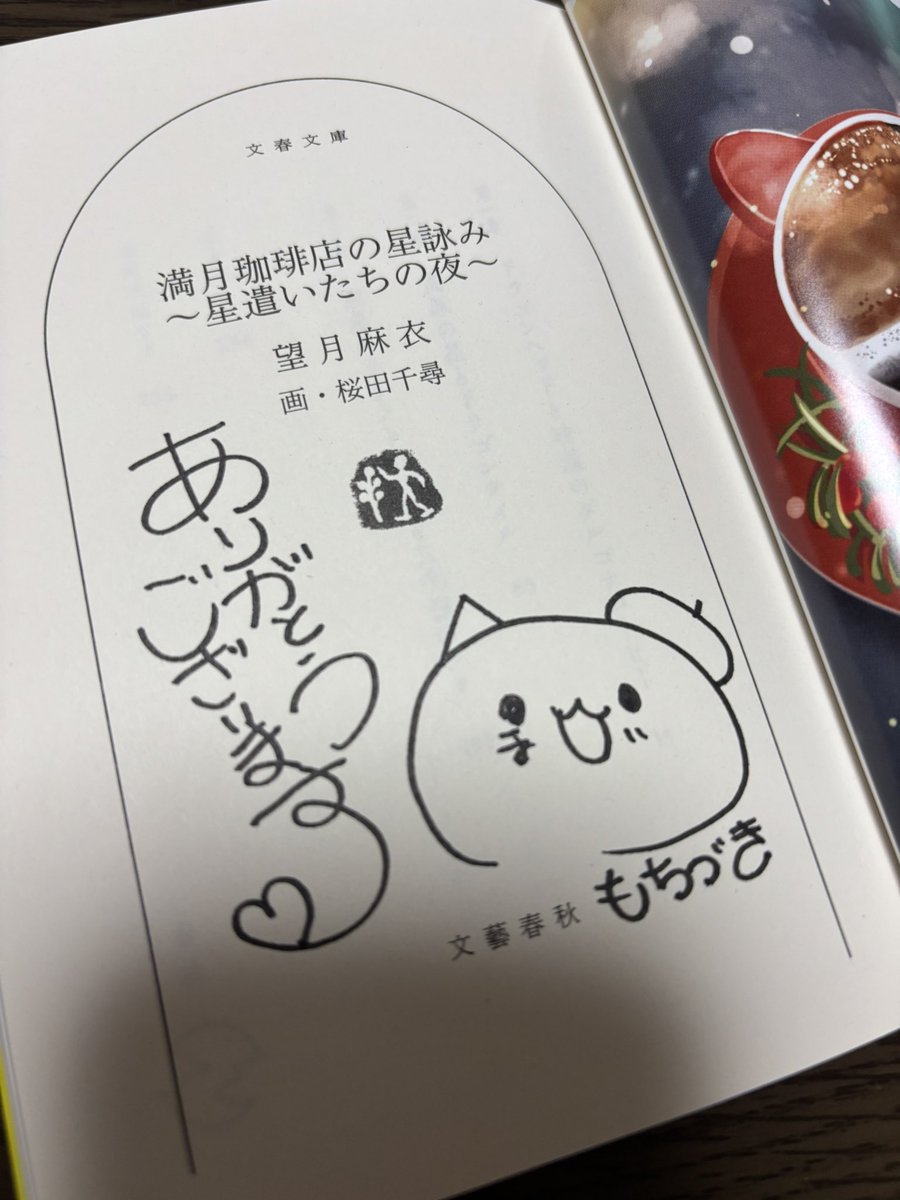 文春文庫
満月珈琲店の星詠み
～星遣いたちの夜～
望月麻衣
画・桜田千尋
ありがとう
ございます
もちづき
文藝春秋